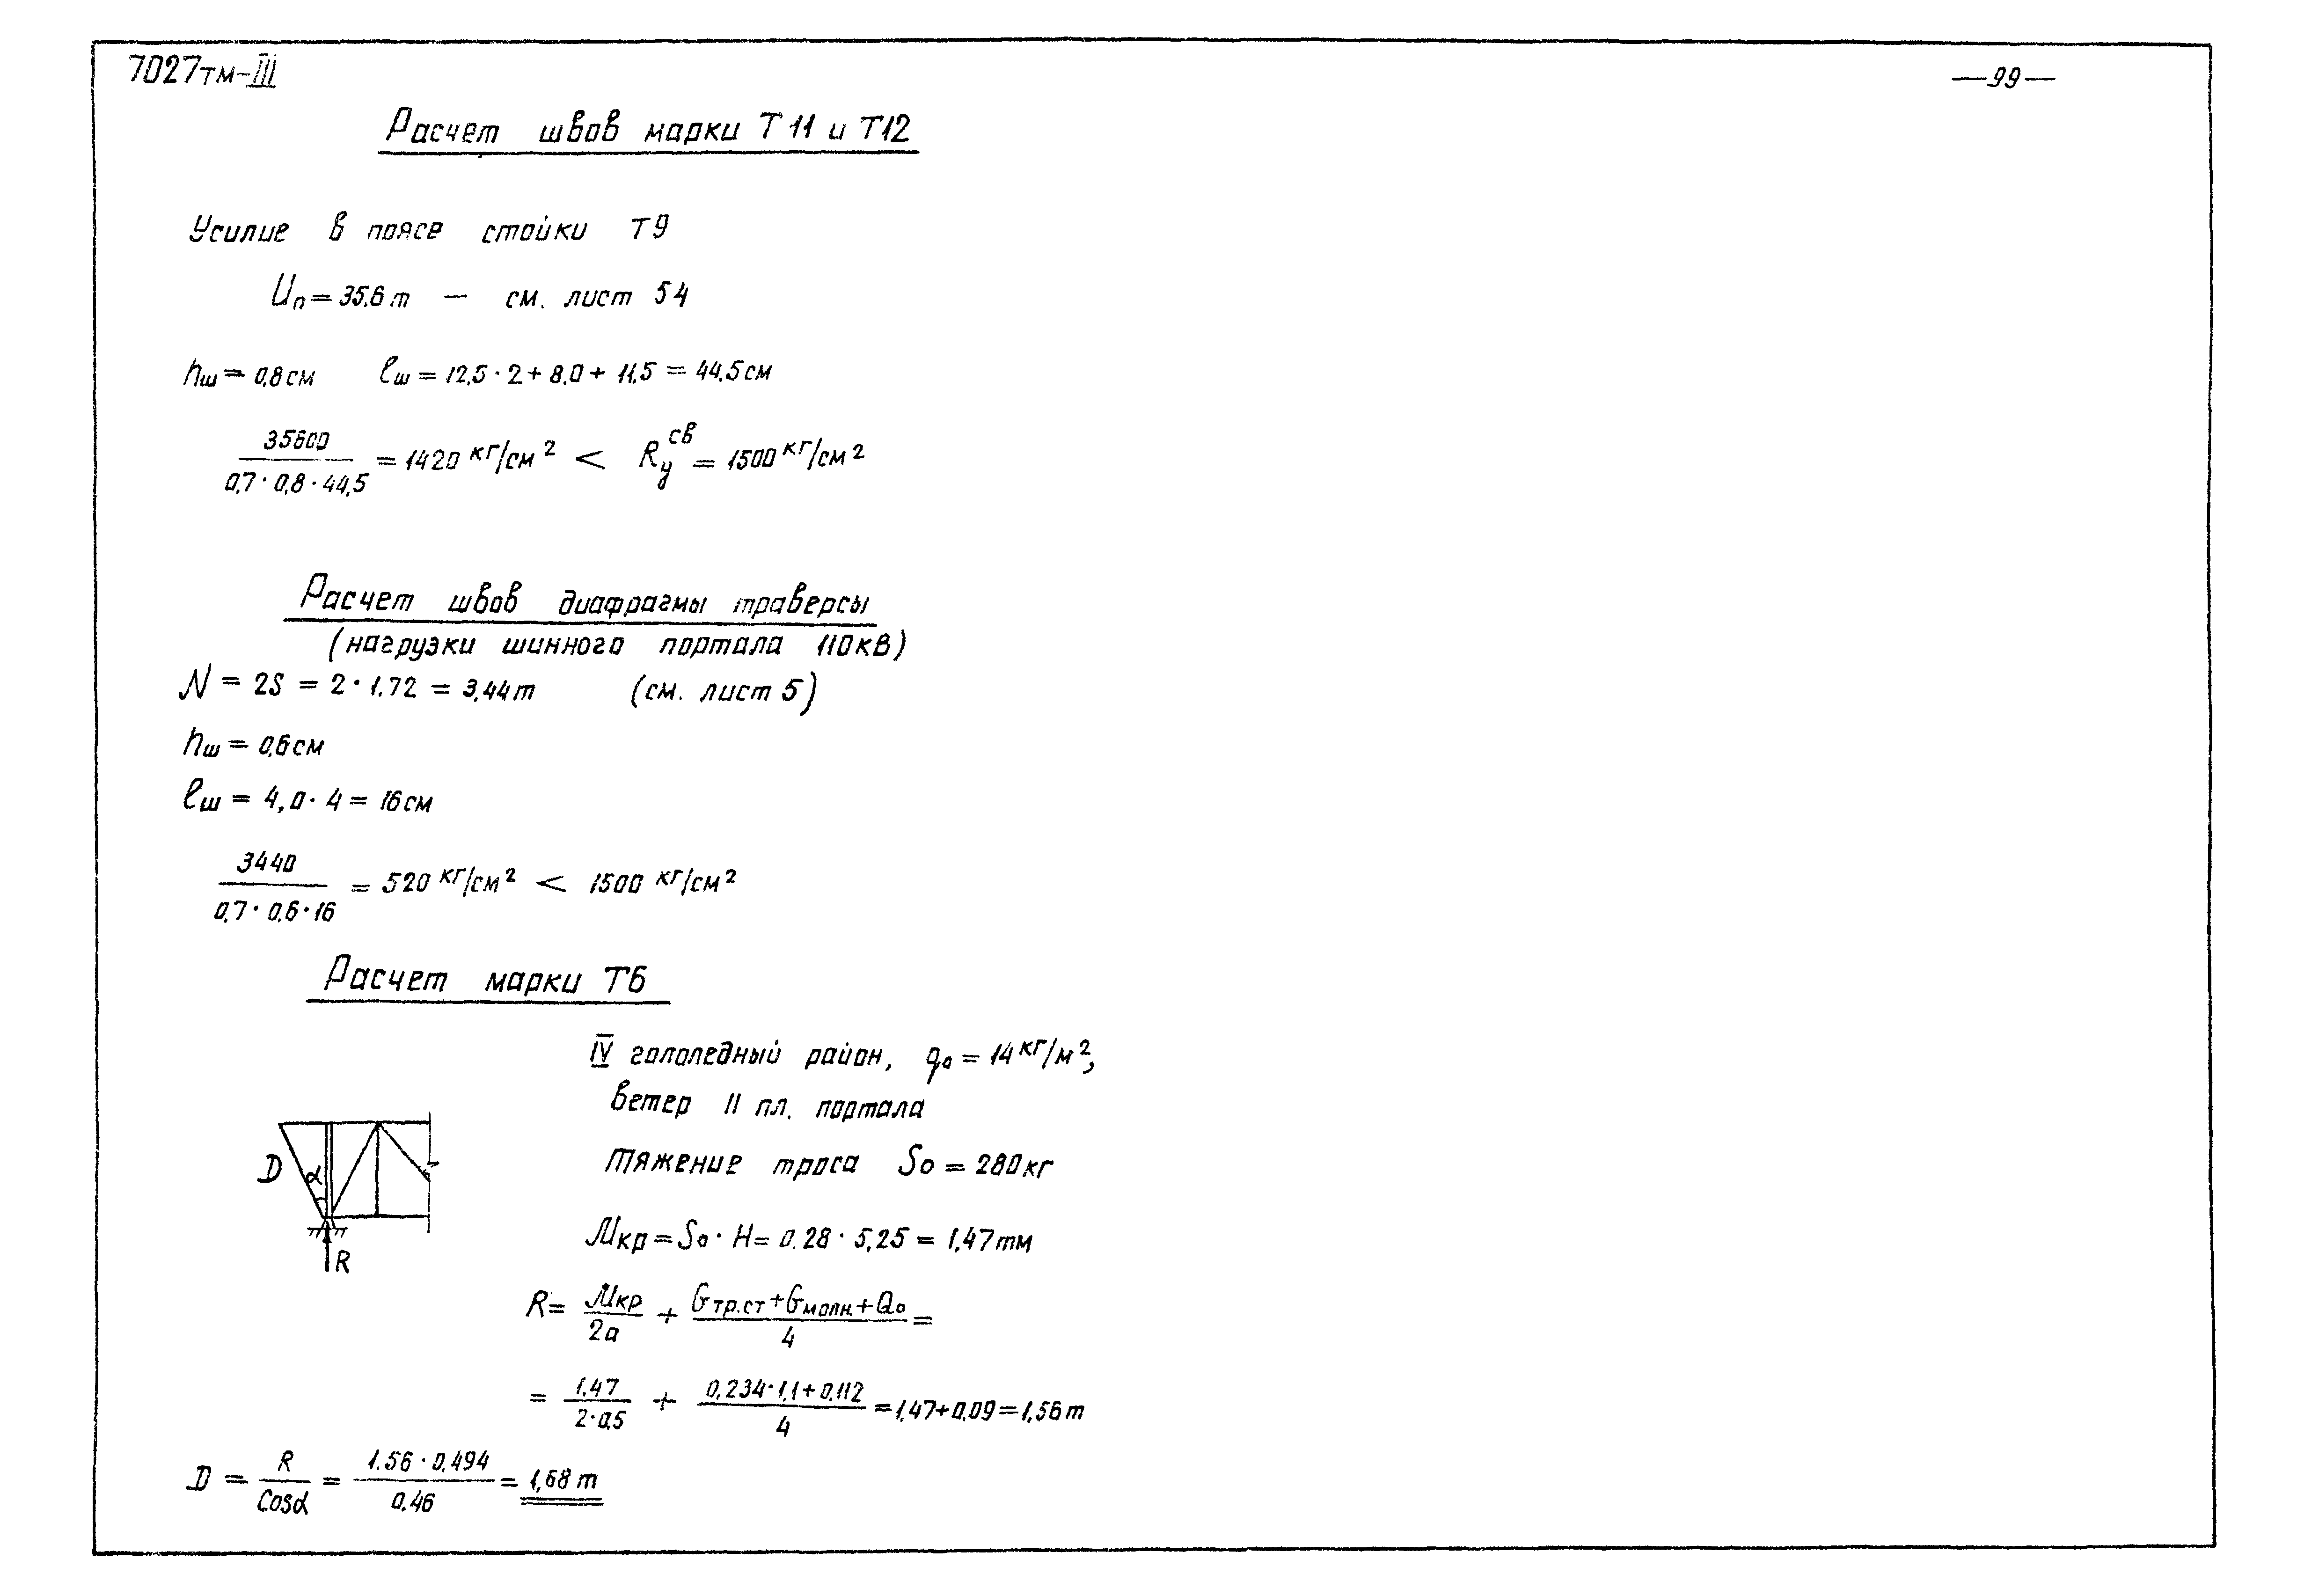 7027тм-III
—99—
Расчет швов марки Т11 и Т12
Усилие в поясе стойки Т9
Uп = 35.6 т — см. лист 54
hш = 0,8 см   ℓш = 12,5 · 2 + 8.0 + 11.5 = 44.5 см
35600 / 0,7 · 0,8 · 44,5 = 1420 кг/см² < Rу^св = 1500 кг/см²
Расчет швов диафрагмы траверсы
(нагрузки шинного портала 110кВ)
N = 2S = 2 · 1.72 = 3,44 т (см. лист 5)
hш = 0,6 см
ℓш = 4,0 · 4 = 16 см
3440 / 0,7 · 0,6 · 16 = 520 кг/см² < 1500 кг/см²
Расчет марки Т6
IV гололедный район, q₀ = 14 кг/м²,
ветер II пл. портала
D
α
R
тяжение троса S₀ = 280 кг
Mкр = S₀ · H = 0.28 · 5,25 = 1,47 тм
R = Mкр / 2а + Gтр.ст + Gмолн. + Q₀ / 4 =
= 1,47 / 2 · 0,5 + 0,234 · 1,1 + 0,112 / 4 = 1,47 + 0,09 = 1,56 т
D = R / Cosα = 1.56 · 0,494 / 0.46 = 1,68 т